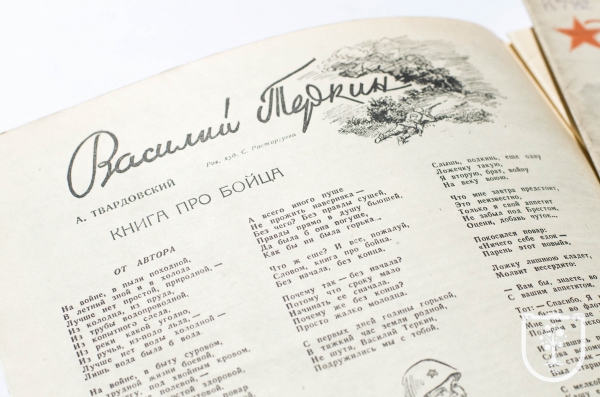 Василий Теркин
Рис. худ. С. Расторгуева
А. ТВАРДОВСКИЙ
КНИГА ПРО БОЙЦА
ОТ АВТОРА
На войне, в пыли походной,
В летный зной и в холода
Лучше нет простой, природной —
Из колодца, из пруда,
Из трубы водопроводной,
Из копытного следа,
Из реки какой угодно,
Из ручья, из-подо льда, —
Лучше нет воды холодной —
Лишь вода была б вода.
На войне, в быту суровом,
трудной жизни боевой,
под хвойным кровом,
полевой,
здоровой,
А всего иного пуще
Не прожить наверняка —
Без чего? Без правды сущей,
Правды прямо в душу бьющей,
Да была б она погуще,
Как бы ни была горька...
Что ж еще? И все, пожалуй,
Словом, книга про бойца.
Без начала, без конца.
Почему так — без начала?
Потому, что сроку мало
Начинать ее сначала.
Почему же без конца?
Просто жалко молодца.
С первых дней годины горькой,
В тяжкий час земли родной,
Не шутя, Василий Теркин,
Подружились мы с тобой.
Слышь, подкинь, еще одну
Ложечку такую,
Я вторую, брат, войну
На веку воюю.
Что мне завтра предстоит,
Это неизвестно,
Только я свой аппетит
Не забыл под Брестом,
Оцени, добавь чуток...
Покосился повар:
«Ничего себе едок —
Парень этот новый».
Ложку лишнюю кладет,
Молвит несердито:
— Вам бы, знаете, во
С вашим аппетитом.
Тот: — Спасибо. Я